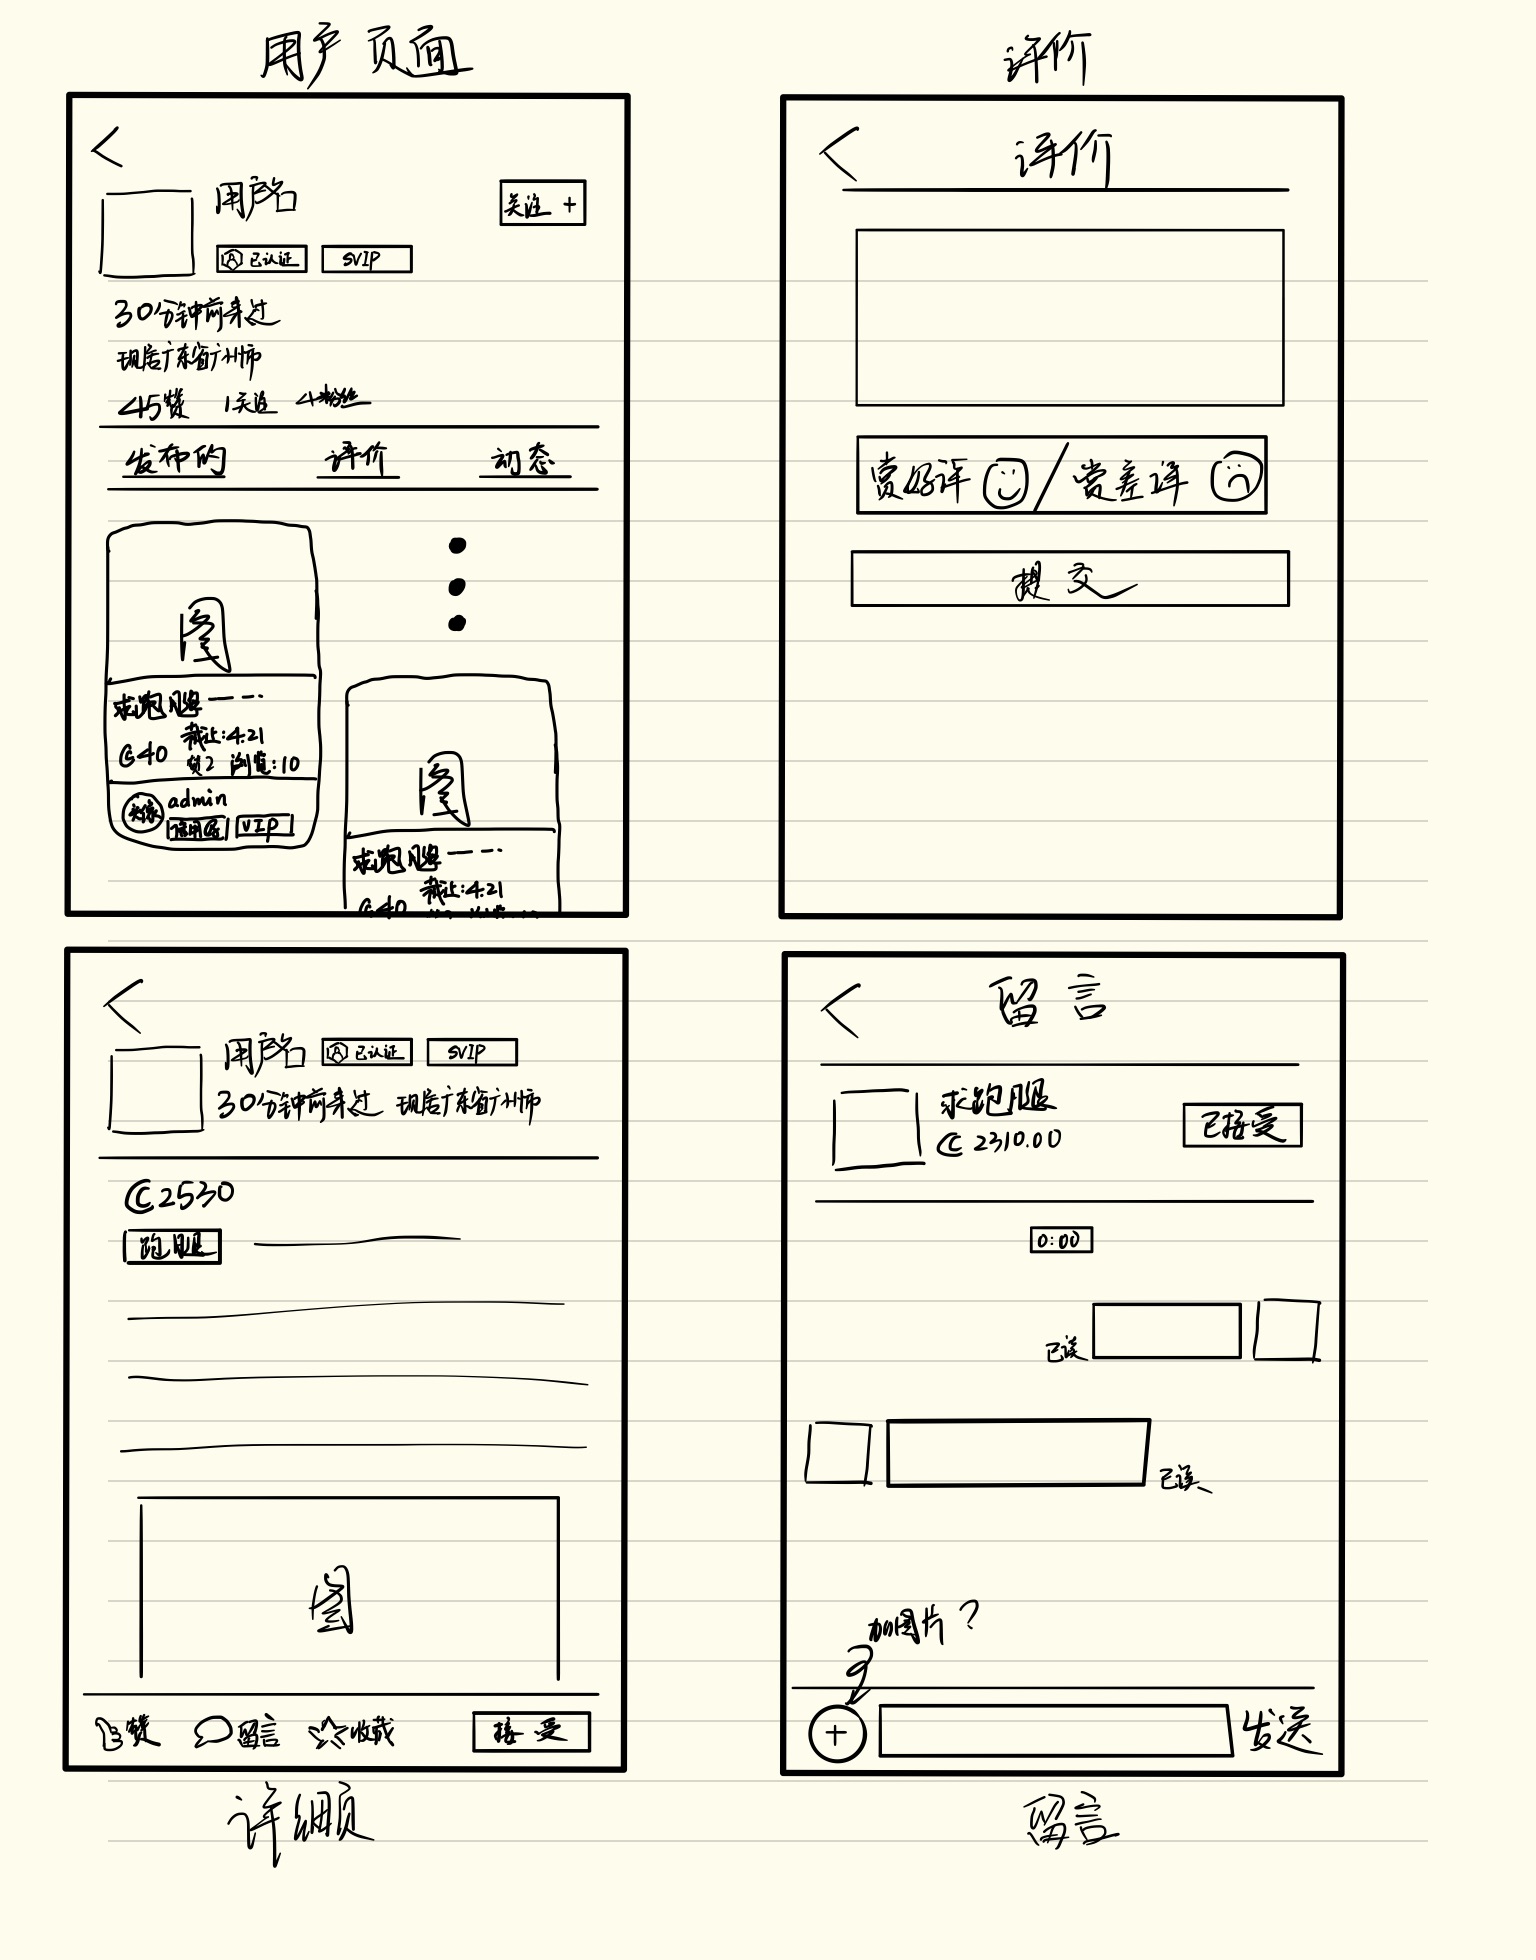 用户页面
用户名
关注 +
已认证
SVIP
30分钟前来过
现居广东省广州市
45赞 1关注 4粉丝
发布的 评价 动态
图
求跑腿
截止:4.21
@40
赞2 浏览:10
头像
admin
信用
VIP
图
求跑腿
截止:4.21
@40
评价
评价
赏好评 / 赏差评
提交
用户名
已认证
SVIP
30分钟前来过 现居广东省广州市
©2530
跑腿
图
赞 留言 收藏 接受
详细页
留言
求跑腿
© 2310.00
已接受
0:00
已读
已读
加图片?
+
发送
留言